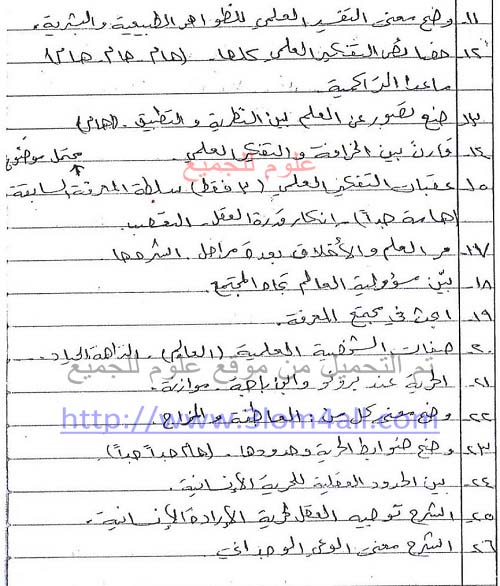 ١١. وضح معنى التفسير العلمي للظواهر الطبيعية والبشرية.
١٢. خصائص التفكير العلمي كلها. (هام هام هام)
ماعدا التراكمية.
١٣. ضع تصور عن العلم بين النظرية والتطبيق. (هام)
١٤. قارن بين الخرافة والتفكير العلمي. محتمل موضوع
علوم للجميع
١٥. عقبات التفكير العلمي (٣ فقط) سلطة المعرفة السابقة
(هامة جداً) - إنكار قدرة العقل - التعصب
١٧. مر العلم والأخلاق بعدة مراحل. اشرحها
١٨. بيّن مسؤولية العالم تجاه المجتمع.
١٩. ابحث في مجتمع المعرفة.
٢٠. صفات الشخصية العلمية (العالم). النزاهة الحياد..
تم التحميل من موقع علوم للجميع
٢١. الحرية عند والبراجما موازنة.
٢٢. وضح معنى كل من: العاطفة والمزاج
http://www.3lom4all.com
٢٣. وضح ضوابط الحرية وحدودها. (هام جداً جداً)
٢٤. بين الحدود العقلية للحرية الإنسانية.
٢٥. اشرح توجيه العقل لحرية الإرادة الإنسانية.
٢٦. اشرح معنى الوعي الوجداني